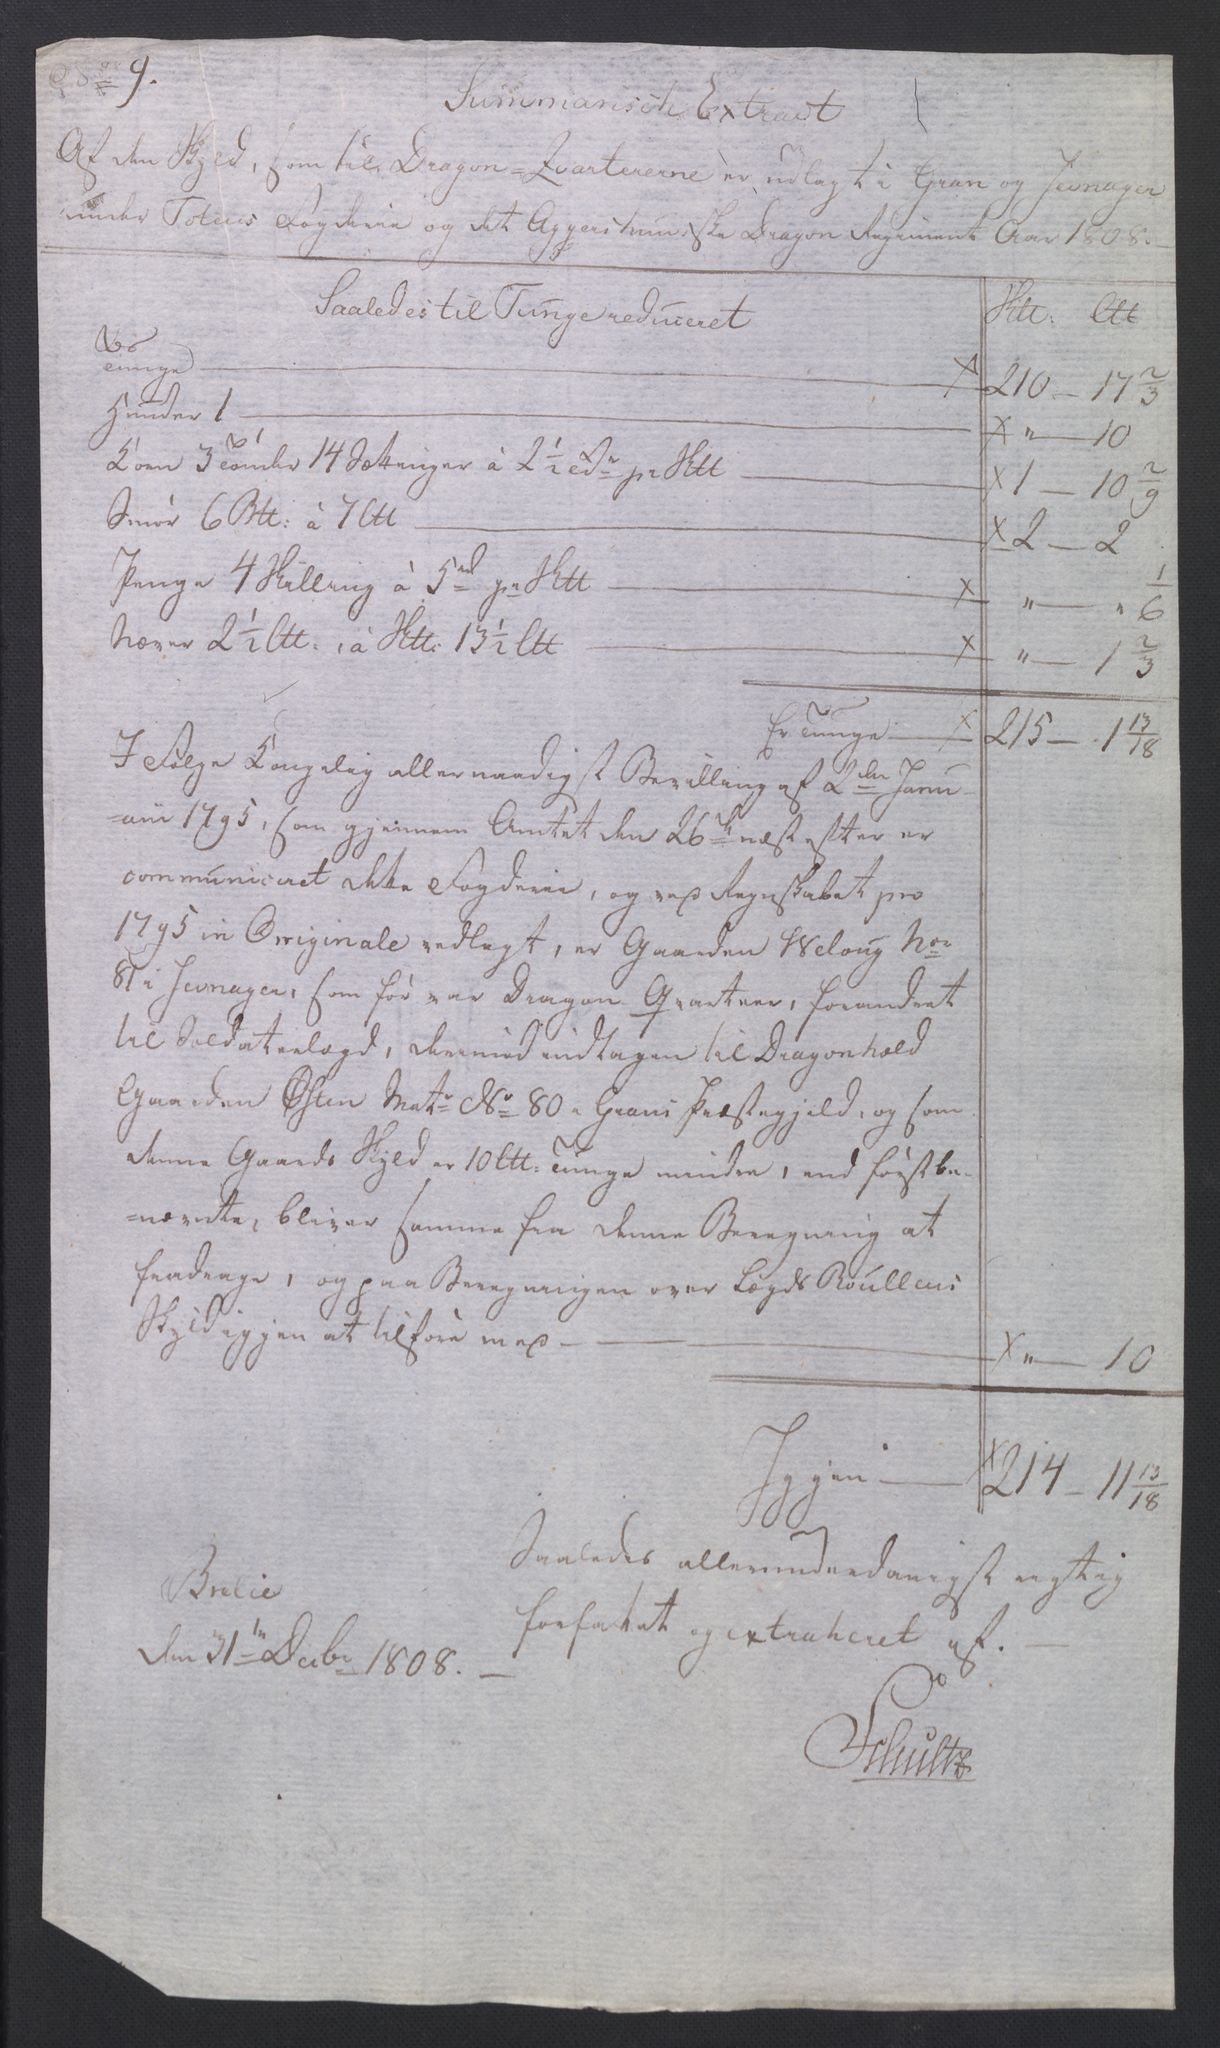 9.
Summarisch Extract
Af den Skyld, som til Dragon-Qvartererne er udlagt i Gran og Jevnager
under Totens Fogderie og det Aggershuusiske Dragon Regiment Aar 1808.
Saaledes til Tunge reduceret Sktt: Ltt
Tunge 210 - 17 2/3
Huuder 1 " - 10
Korn 3 Tønder 14 Sættinger à 2 1/2 Tdr pr Sktt 1 - 10 2/9
Smør 6 Btt: à 7 Ltt 2 - 2
Penge 4 Skilling à 5 pr Sktt " - " 1/6
Næver 2 1/2 Ltt: à Sktt: 13 1/2 Ltt " - 1 2/3
Er Tunge 215 - 1 13/18
I Følge Kongelig allernaadigst Bevilling af 2den Janu-
-arii 1795, som gjennem Amtet den 26de næst efter er
communiceret dette Fogderie, og ved Regnskabet pro
1795 in Originale vedlagt, er Gaarden Weloug No
81 i Jevnager, som før var Dragon Qvarteer, forandret
til Soldaterlægd, derimod indtagen til Dragonhold
Gaarden Østen Matr No 80 i Grans Præstegjeld, og som
denne Gaards Skyld er 10 Ltt: Tunge mindre, end førstbe-
-nævnte, bliver samme fra denne Beregning at
fradrage, og paa Beregningen over Lægds Roullens
Skyld igjen at tilføre med - " - 10
Igjen 214 - 11 13/18
Saaledes allerunderdanigst rigtig
forfattet og extraheret af. -
Brelie
den 31te Decbr 1808. -
Schultz